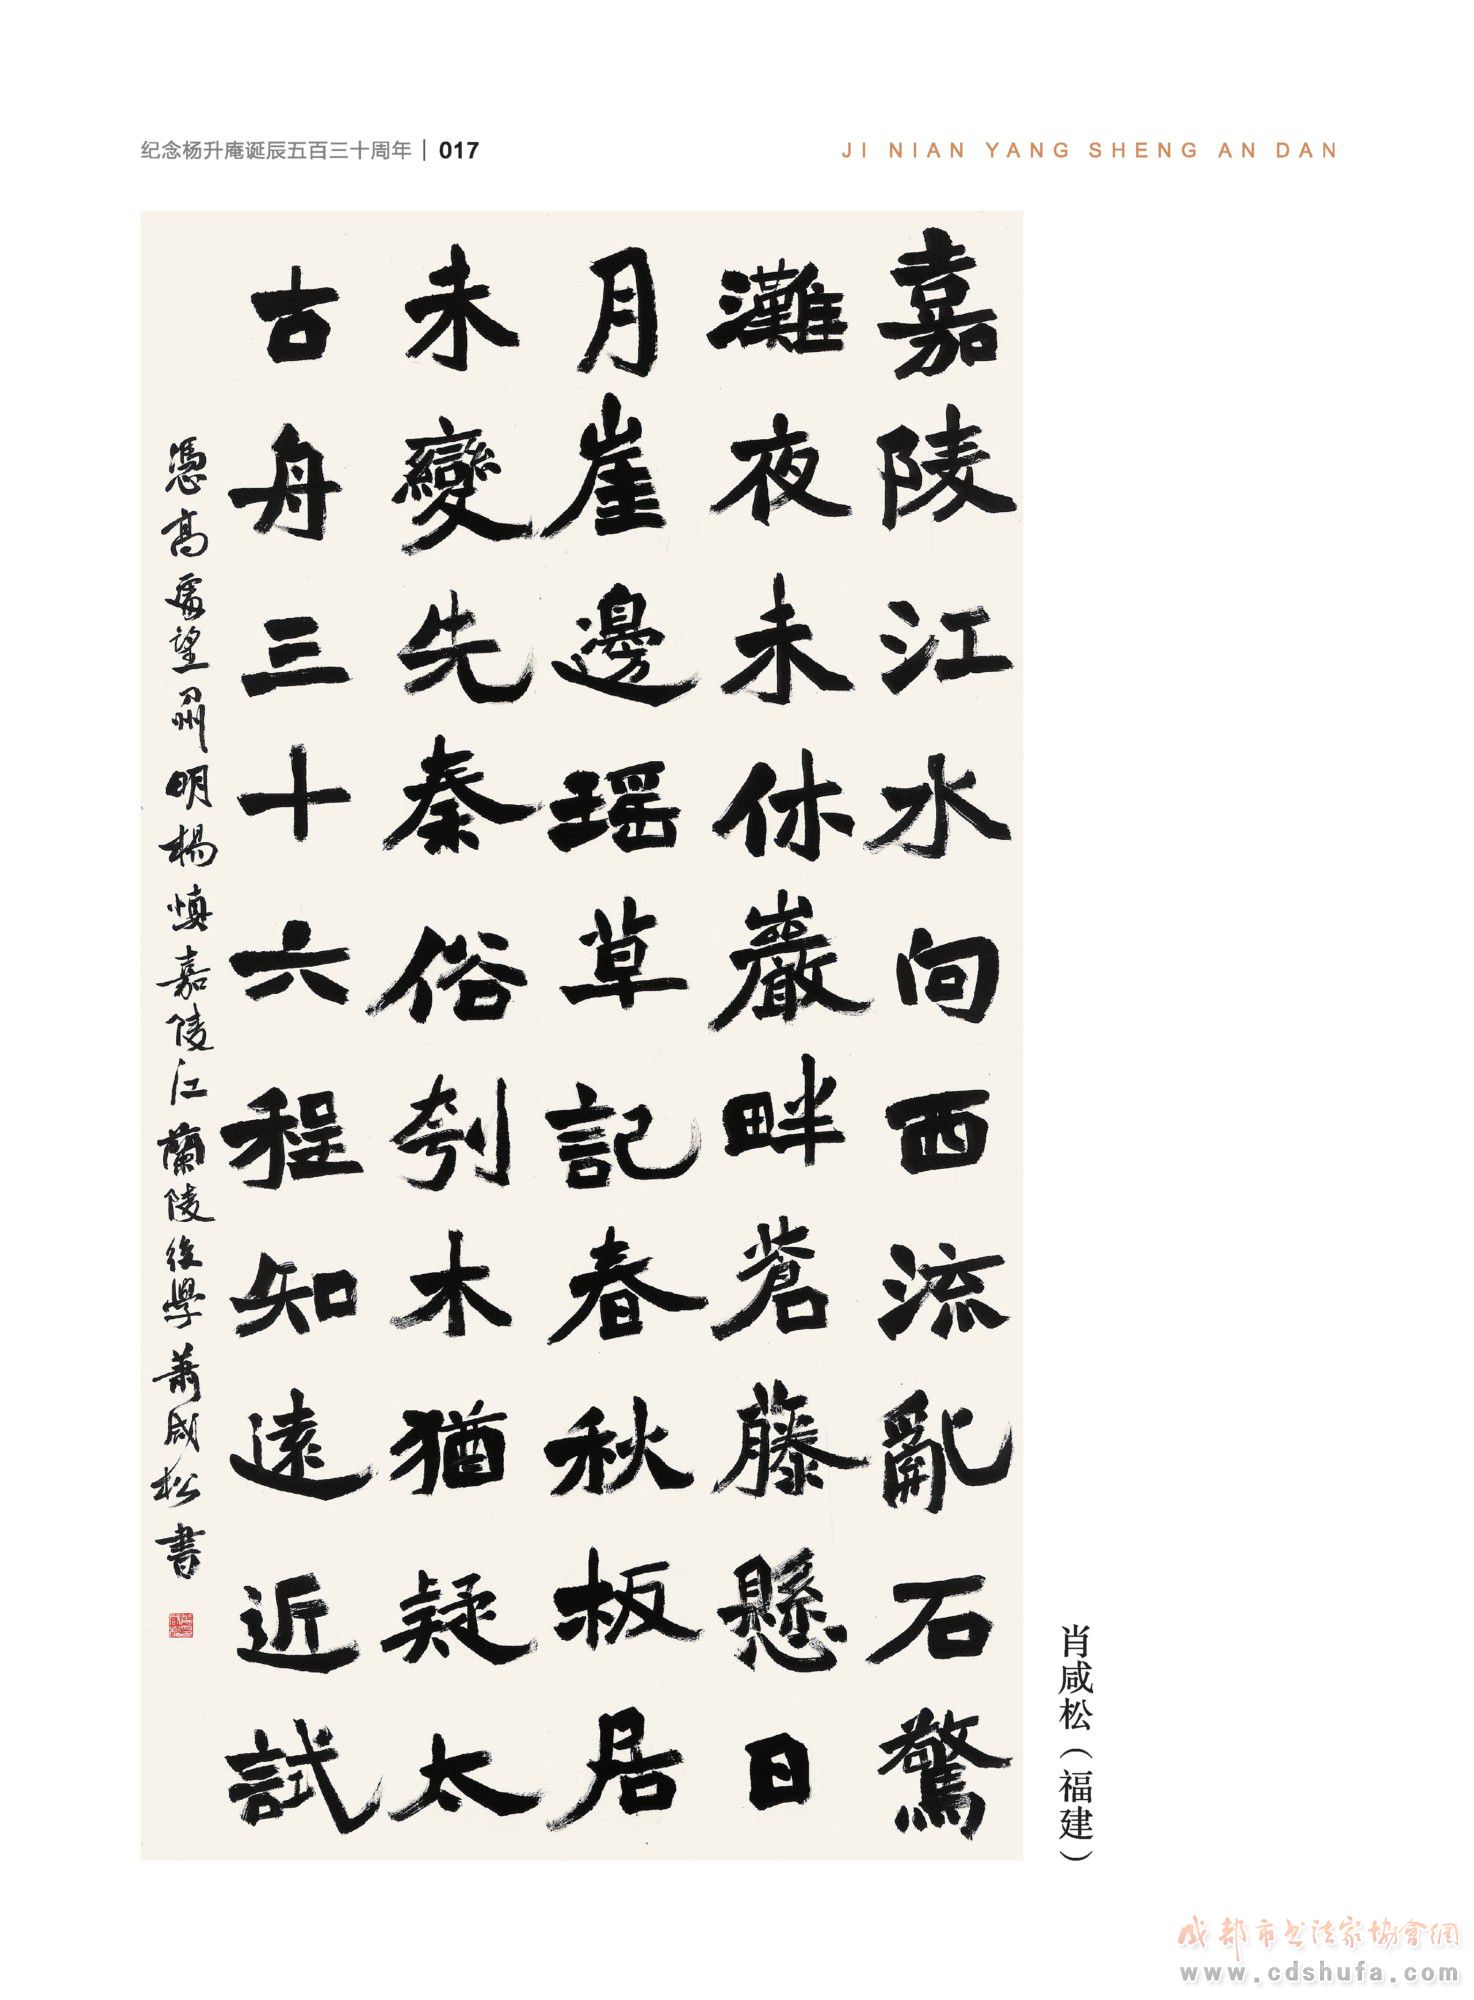 纪念杨升庵诞辰五百三十周年 | 017
JI NIAN YANG SHENG AN DAN
嘉陵江水向西流亂石驚
灘夜未休巖畔蒼藤懸日
月崖邊瑶草記春秋板居
未變先秦俗刳木猶疑太
古舟三十六程知遠近試
憑高處望刀州明楊慎嘉陵江蘭陵後學萧咸松書
肖咸松（福建）
成都市书法家協會網
www.cdshufa.com